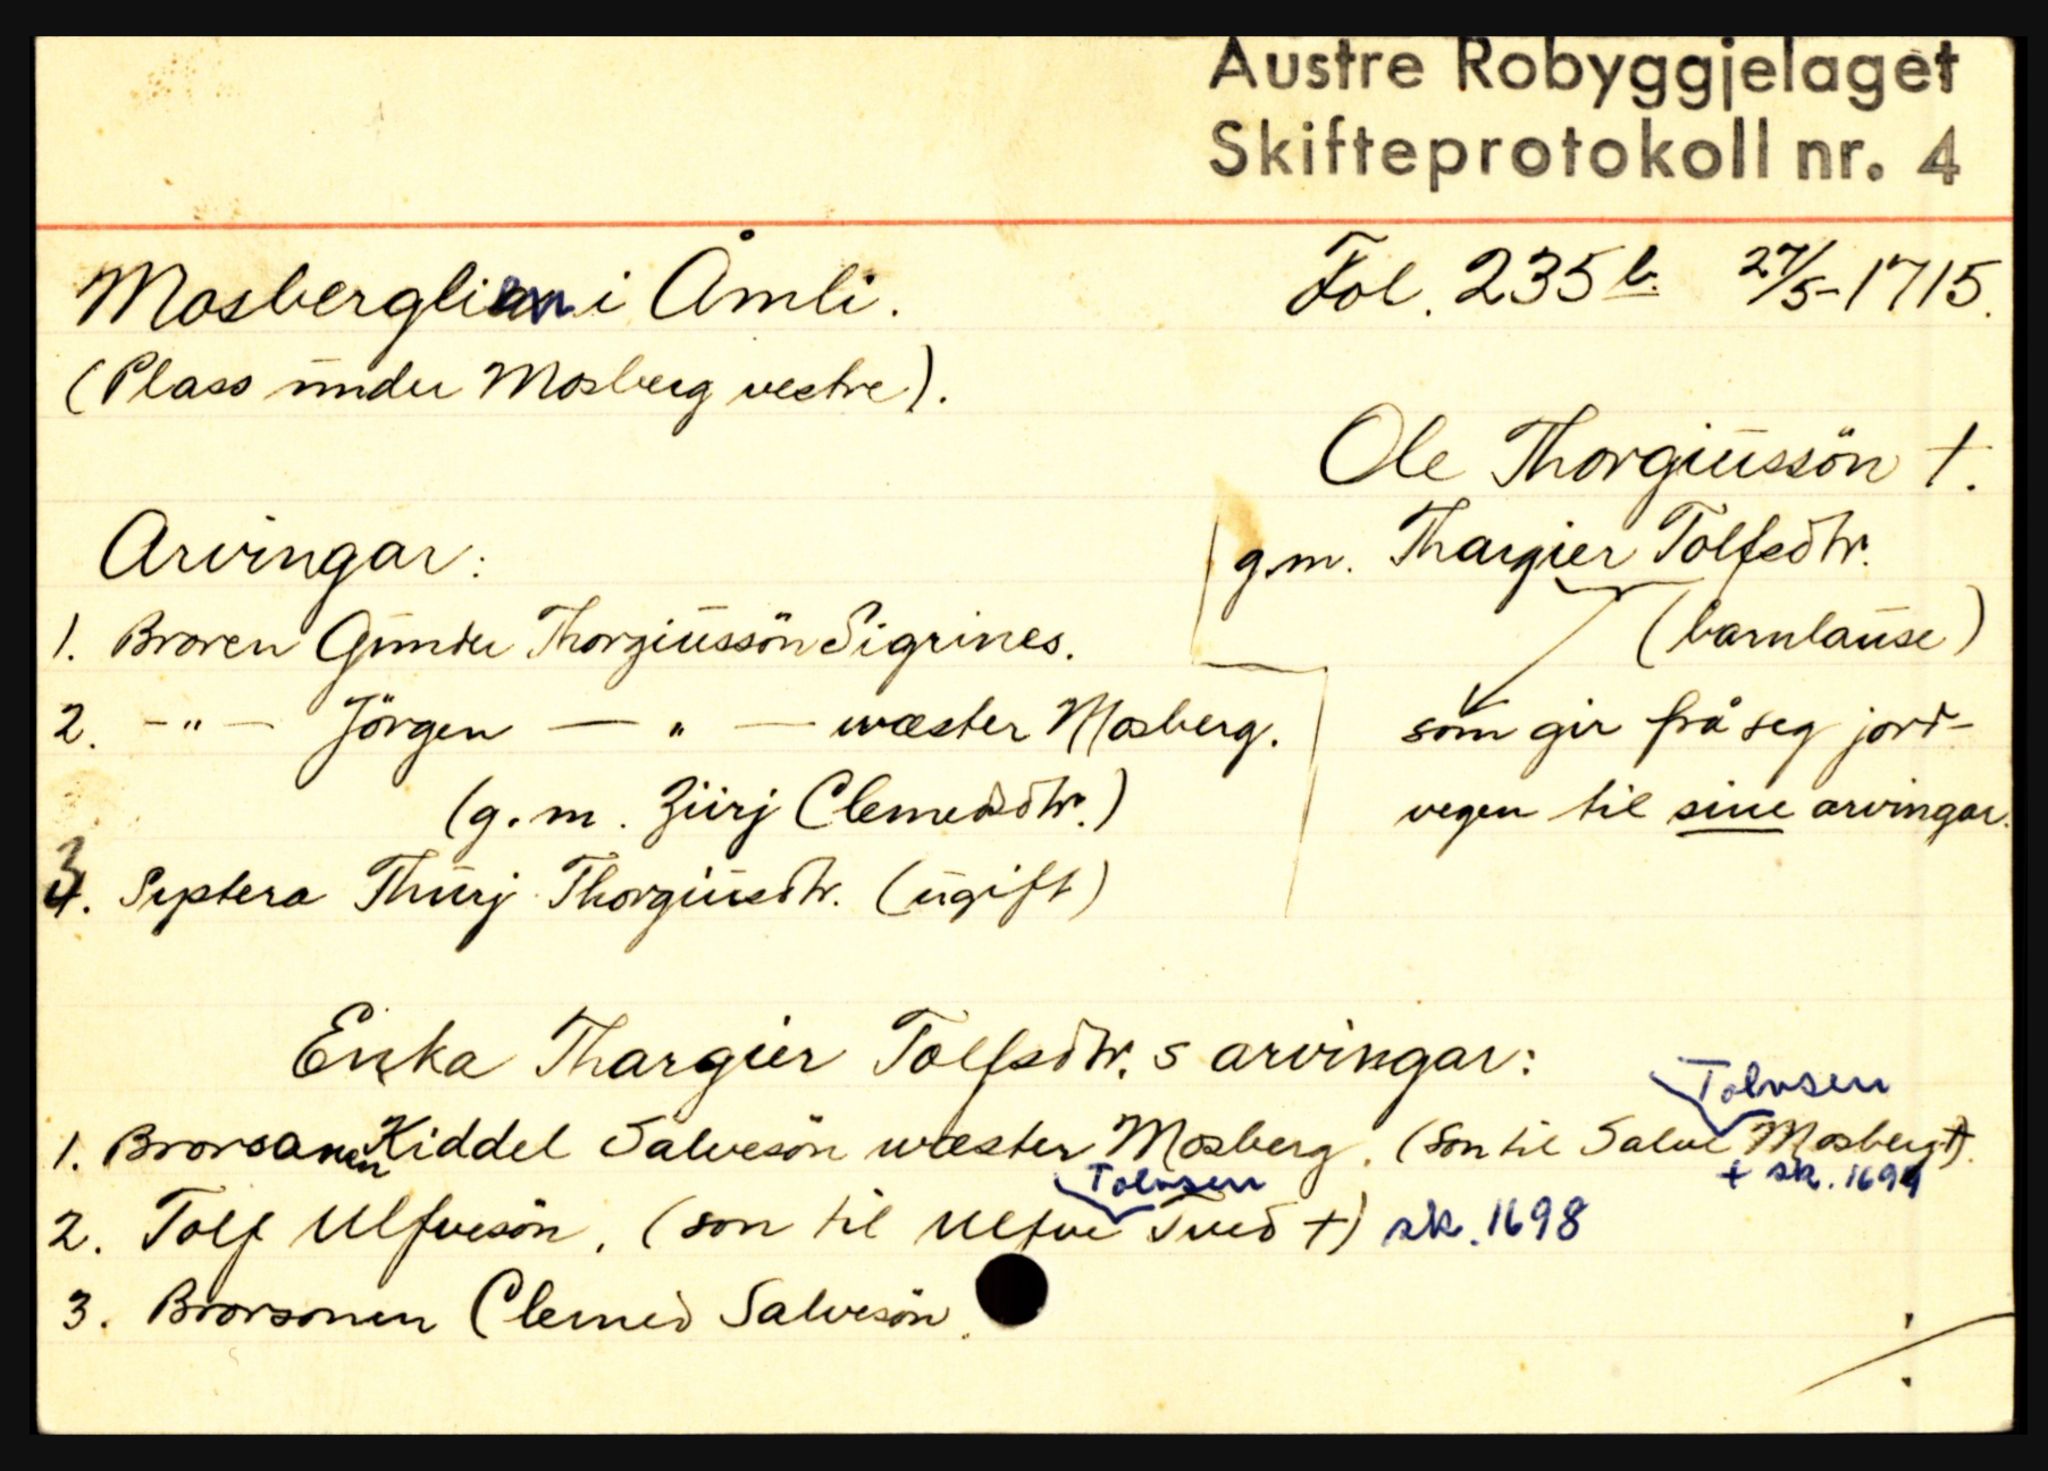 Austre Robyggjelaget
Skifteprotokoll nr. 4
Mosberglien i Åmli. Fol. 235 b. 27/5-1715.
(Plass under Mosberg vestre).
Ole Thorgiussön †.
Arvingar:
g.m. Thargier Tolfsdtr.
(barnlause)
1. Broren Gunder Thorgiussön Sigrines.
2. -"- Jörgen -"- wæster Mosberg.
som gir frå seg jord-
(g.m. Ziirj Clemedsdtr.)
vegen til sine arvingar.
3. Systera Thurj Thorgiusdtr. (ugift)
Enka Thargier Tolfsdtr.s arvingar:
Tolvsen
1. Brorsonen Kiddel Salvesön wæster Mosberg. (son til Salve Mosberg †).
Tolvsen † sk. 1694
2. Tolf Ulfvesön. (son til Ulfve Tved †) sk. 1698
3. Brorsonen Clemed Salvesön.